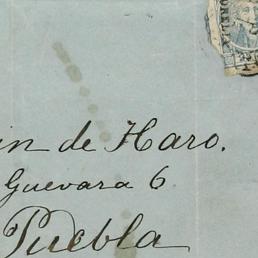 in de Haro.
Guevara 6
Puebla